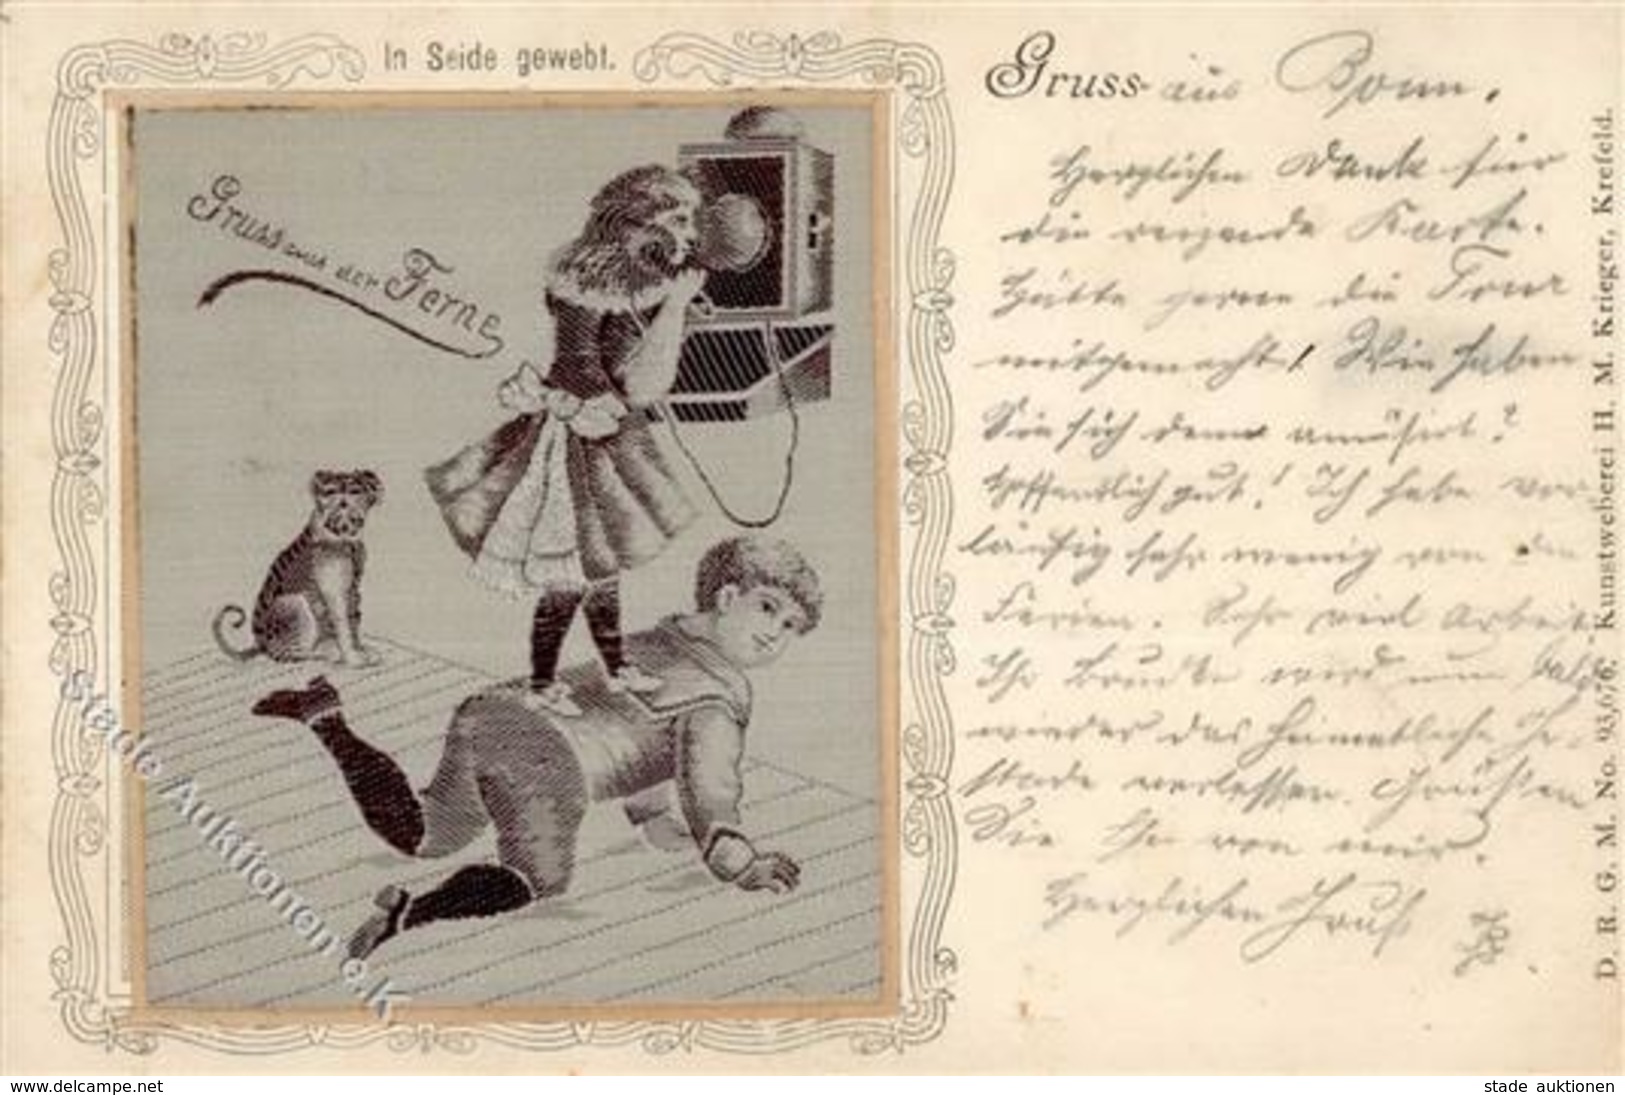 In Seide gewebt.
Gruss aus der Ferne
Gruss aus Bonn.
Herzlichen Dank für
die reizende Karte.
Hätte gerne die Tour
mitgemacht! Wie haben
Sie sich denn amüsirt?
Hoffentlich gut! Ich habe vor
läufig sehr wenig von den
Ferien. Sehr viel Arbeit
Ihr wird nun bald
wieder das heimatliche Ge-
stade verlassen. Grüßen
Sie von mir.
Herzlichen Gruß
D. R. G. M. No. 93,676. Kunstweberei H. M. Krieger, Krefeld.
Stade Auktionen e.K
www.delcampe.net
stade auktionen